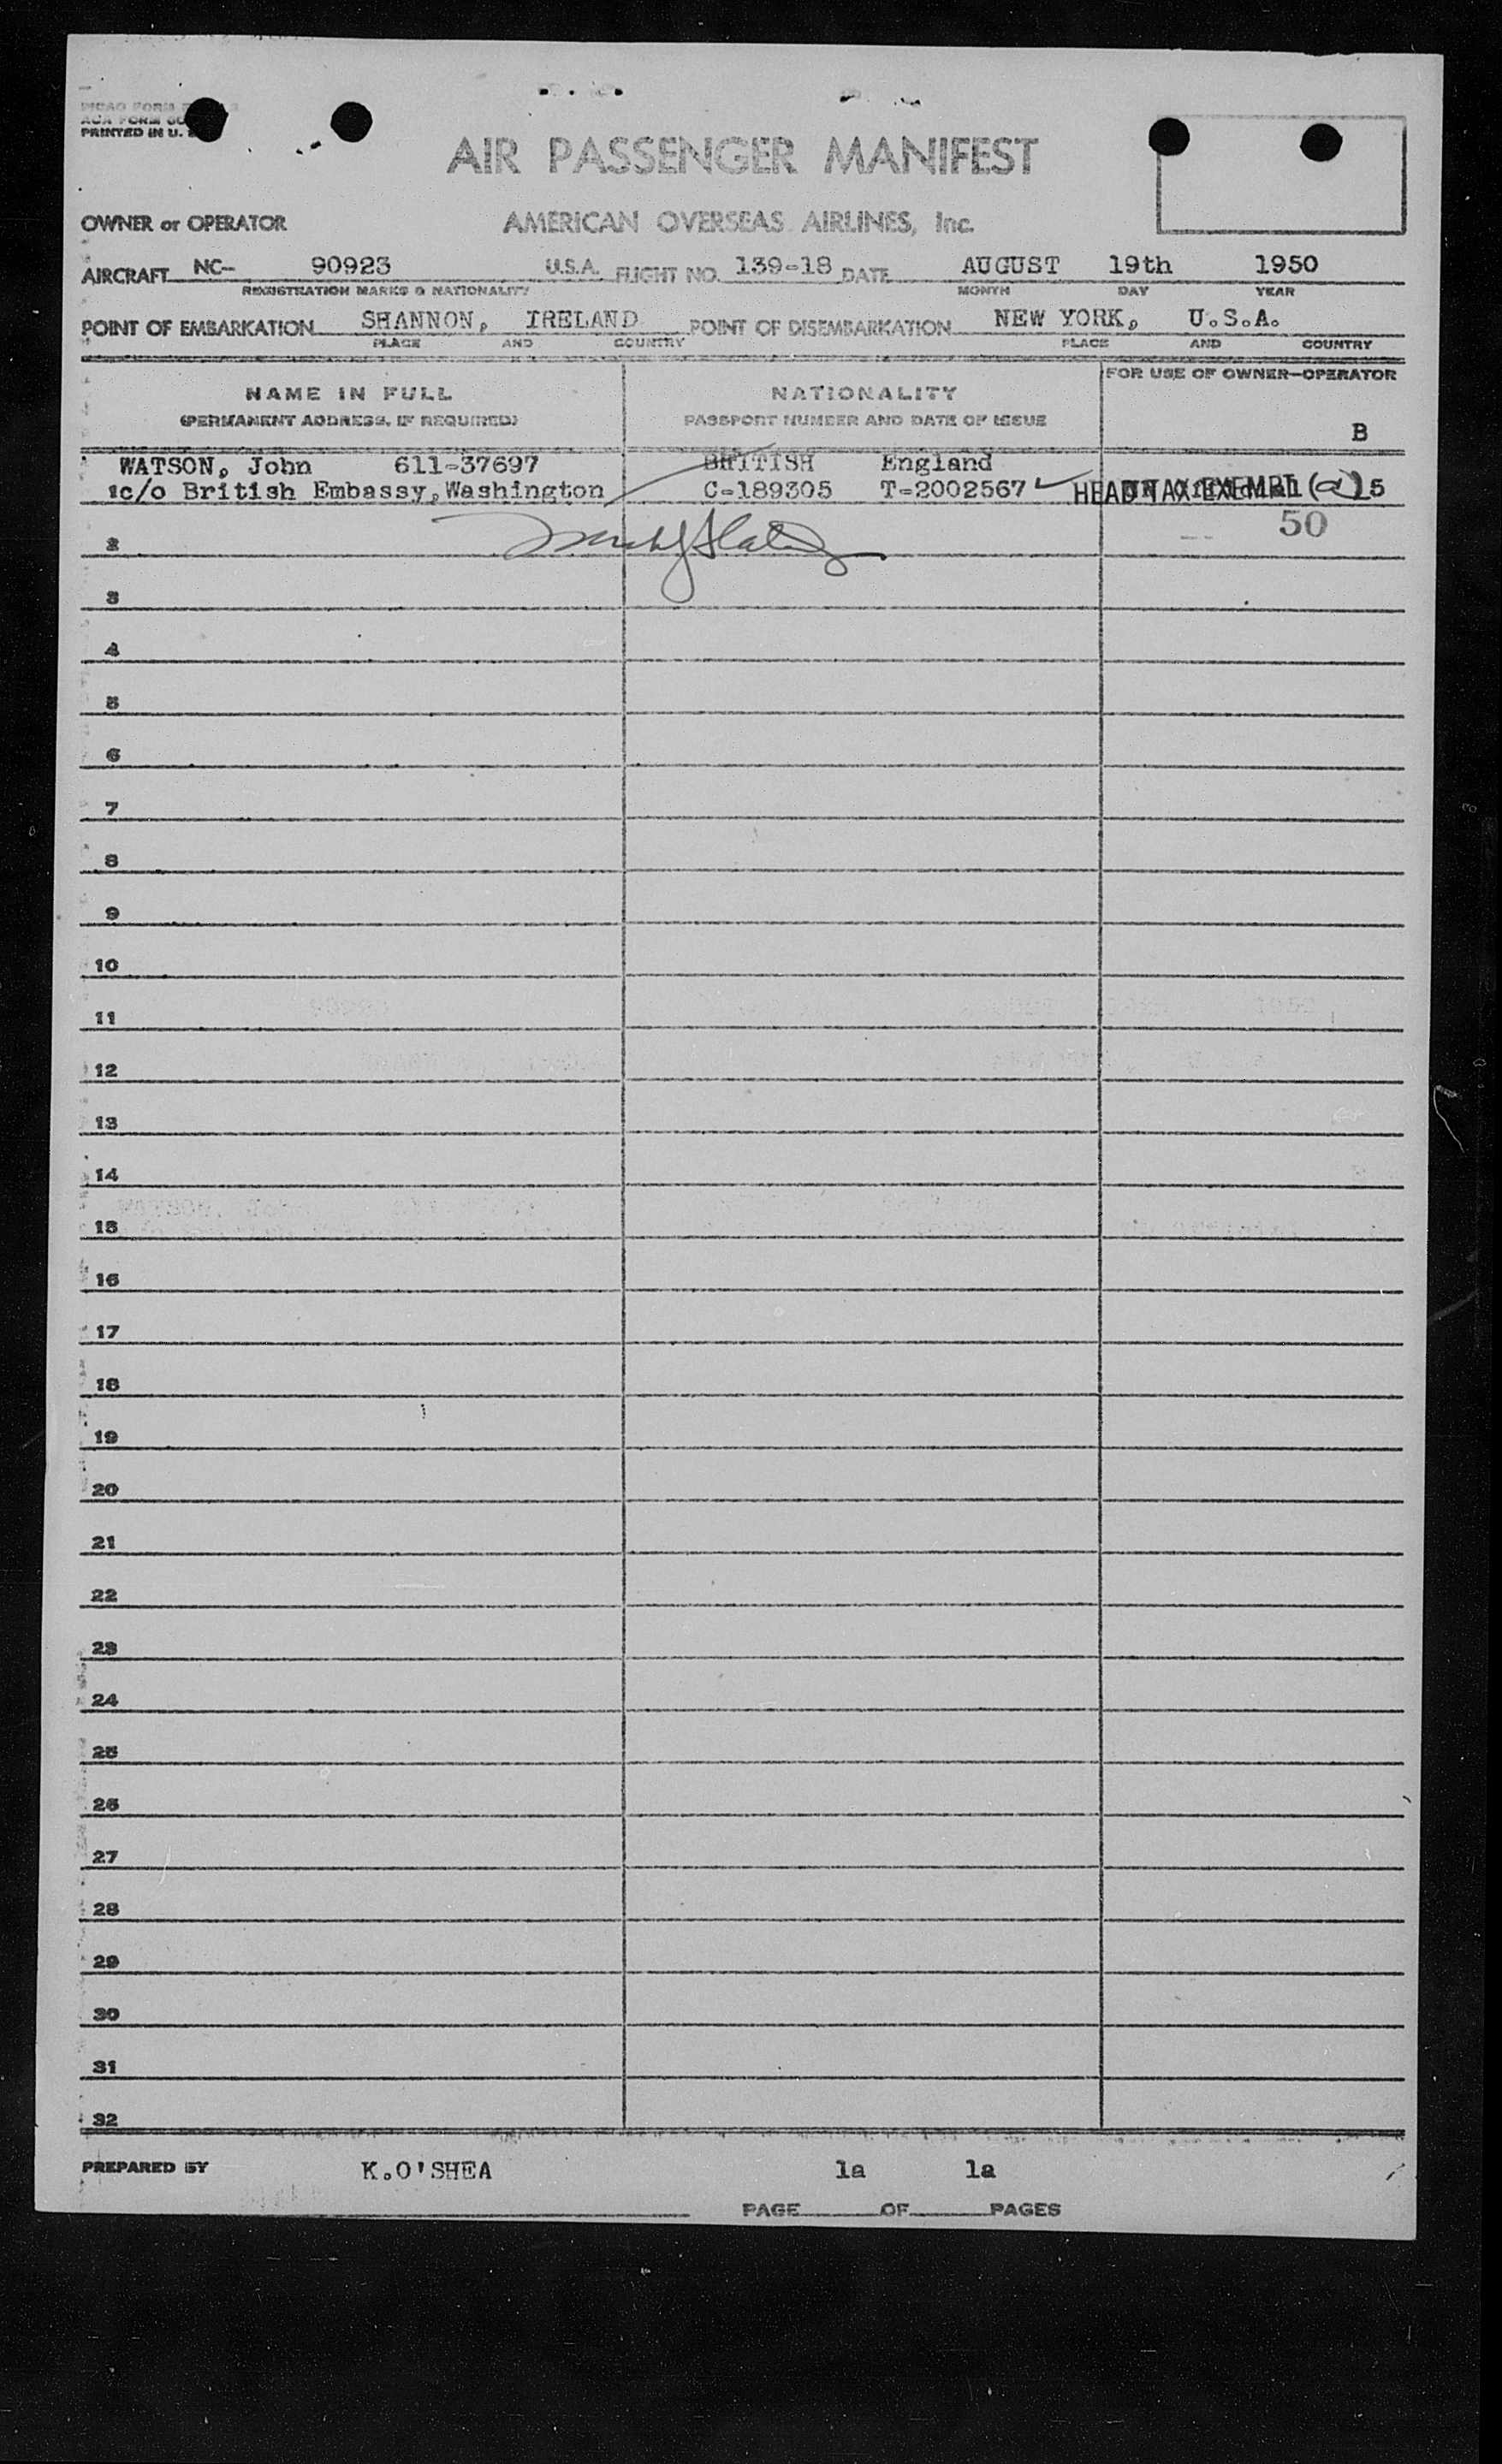 PRINTED IN U.
AIR PASSENGER MANIFEST
OWNER or OPERATOR AMERICAN OVERSEAS AIRLINES, Inc.
AIRCRAFT NC- 90923 U.S.A. FLIGHT NO. 139-18 DATE AUGUST 19th 1950
REGISTRATION MARKS & NATIONALITY MONTH DAY YEAR
POINT OF EMBARKATION SHANNON, IRELAND POINT OF DISEMBARKATION NEW YORK, U.S.A.
PLACE AND COUNTRY PLACE AND COUNTRY
NAME IN FULL NATIONALITY FOR USE OF OWNER-OPERATOR
(PERMANENT ADDRESS, IF REQUIRED) PASSPORT NUMBER AND DATE OF ISSUE
B
WATSON, John 611-37697 BRITISH England
1 c/o British Embassy, Washington C-189305 T-2002567 HEAD TAX EXEMPT (a) 15
2 50
3
4
5
6
7
8
9
10
11
12
13
14
15
16
17
18
19
20
21
22
23
24
25
26
27
28
29
30
31
32
PREPARED BY K.O'SHEA 1a 1a
PAGE OF PAGES